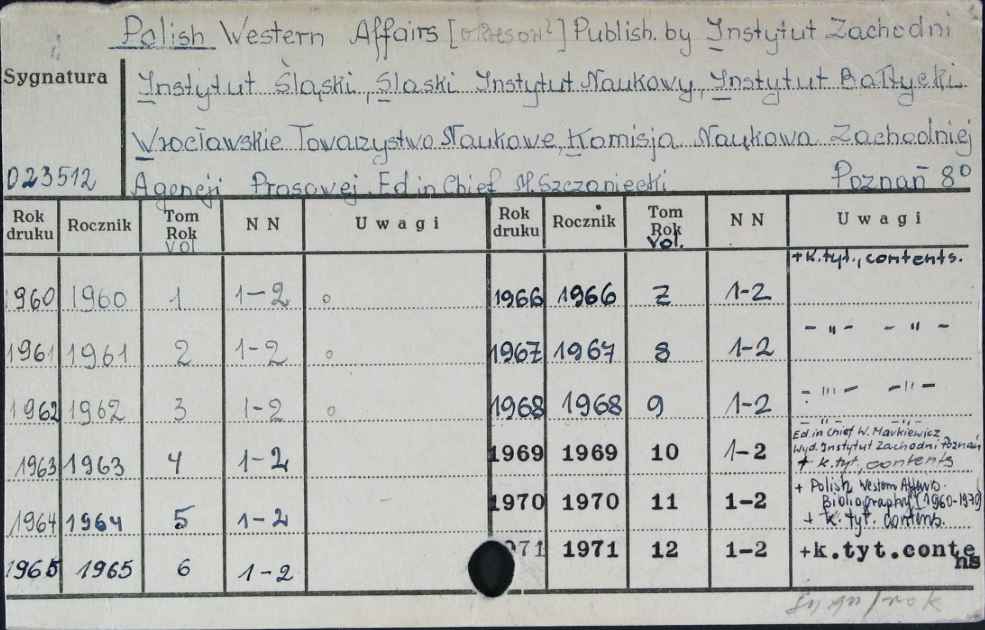 Polish Western Affairs Publish. by Instytut Zachodni
Sygnatura
Instytut Śląski, Slaski Instytut Naukowy, Instytut Bałtycki
Wrocławskie Towarzystwo Naukowe, Komisja Naukowa Zachodniej
023512
Agencji Prasowej. Ed in Chief M. Szczaniecki Poznań 8°
Rok druku Rocznik Tom Rok Vol NN Uwagi Rok druku Rocznik Tom Rok Vol. NN Uwagi
1960 1960 1 1-2 o 1966 1966 7 1-2 +k.tyt., contents.
1961 1961 2 1-2 o 1967 1967 8 1-2 - " - - " -
1962 1962 3 1-2 o 1968 1968 9 1-2 - " - - " -
1963 1963 4 1-2 1969 1969 10 1-2 Ed. in Chief W. Markiewicz
Wyd. Instytut Zachodni Poznań
+ k.tyt., contents
1964 1964 5 1-2 1970 1970 11 1-2 + Polish Western Affairs.
Bibliography I (1960-1970)
+ k. tyt. contens.
1965 1965 6 1-2 971 1971 12 1-2 +k.tyt.conte
ns
Sygn/rok